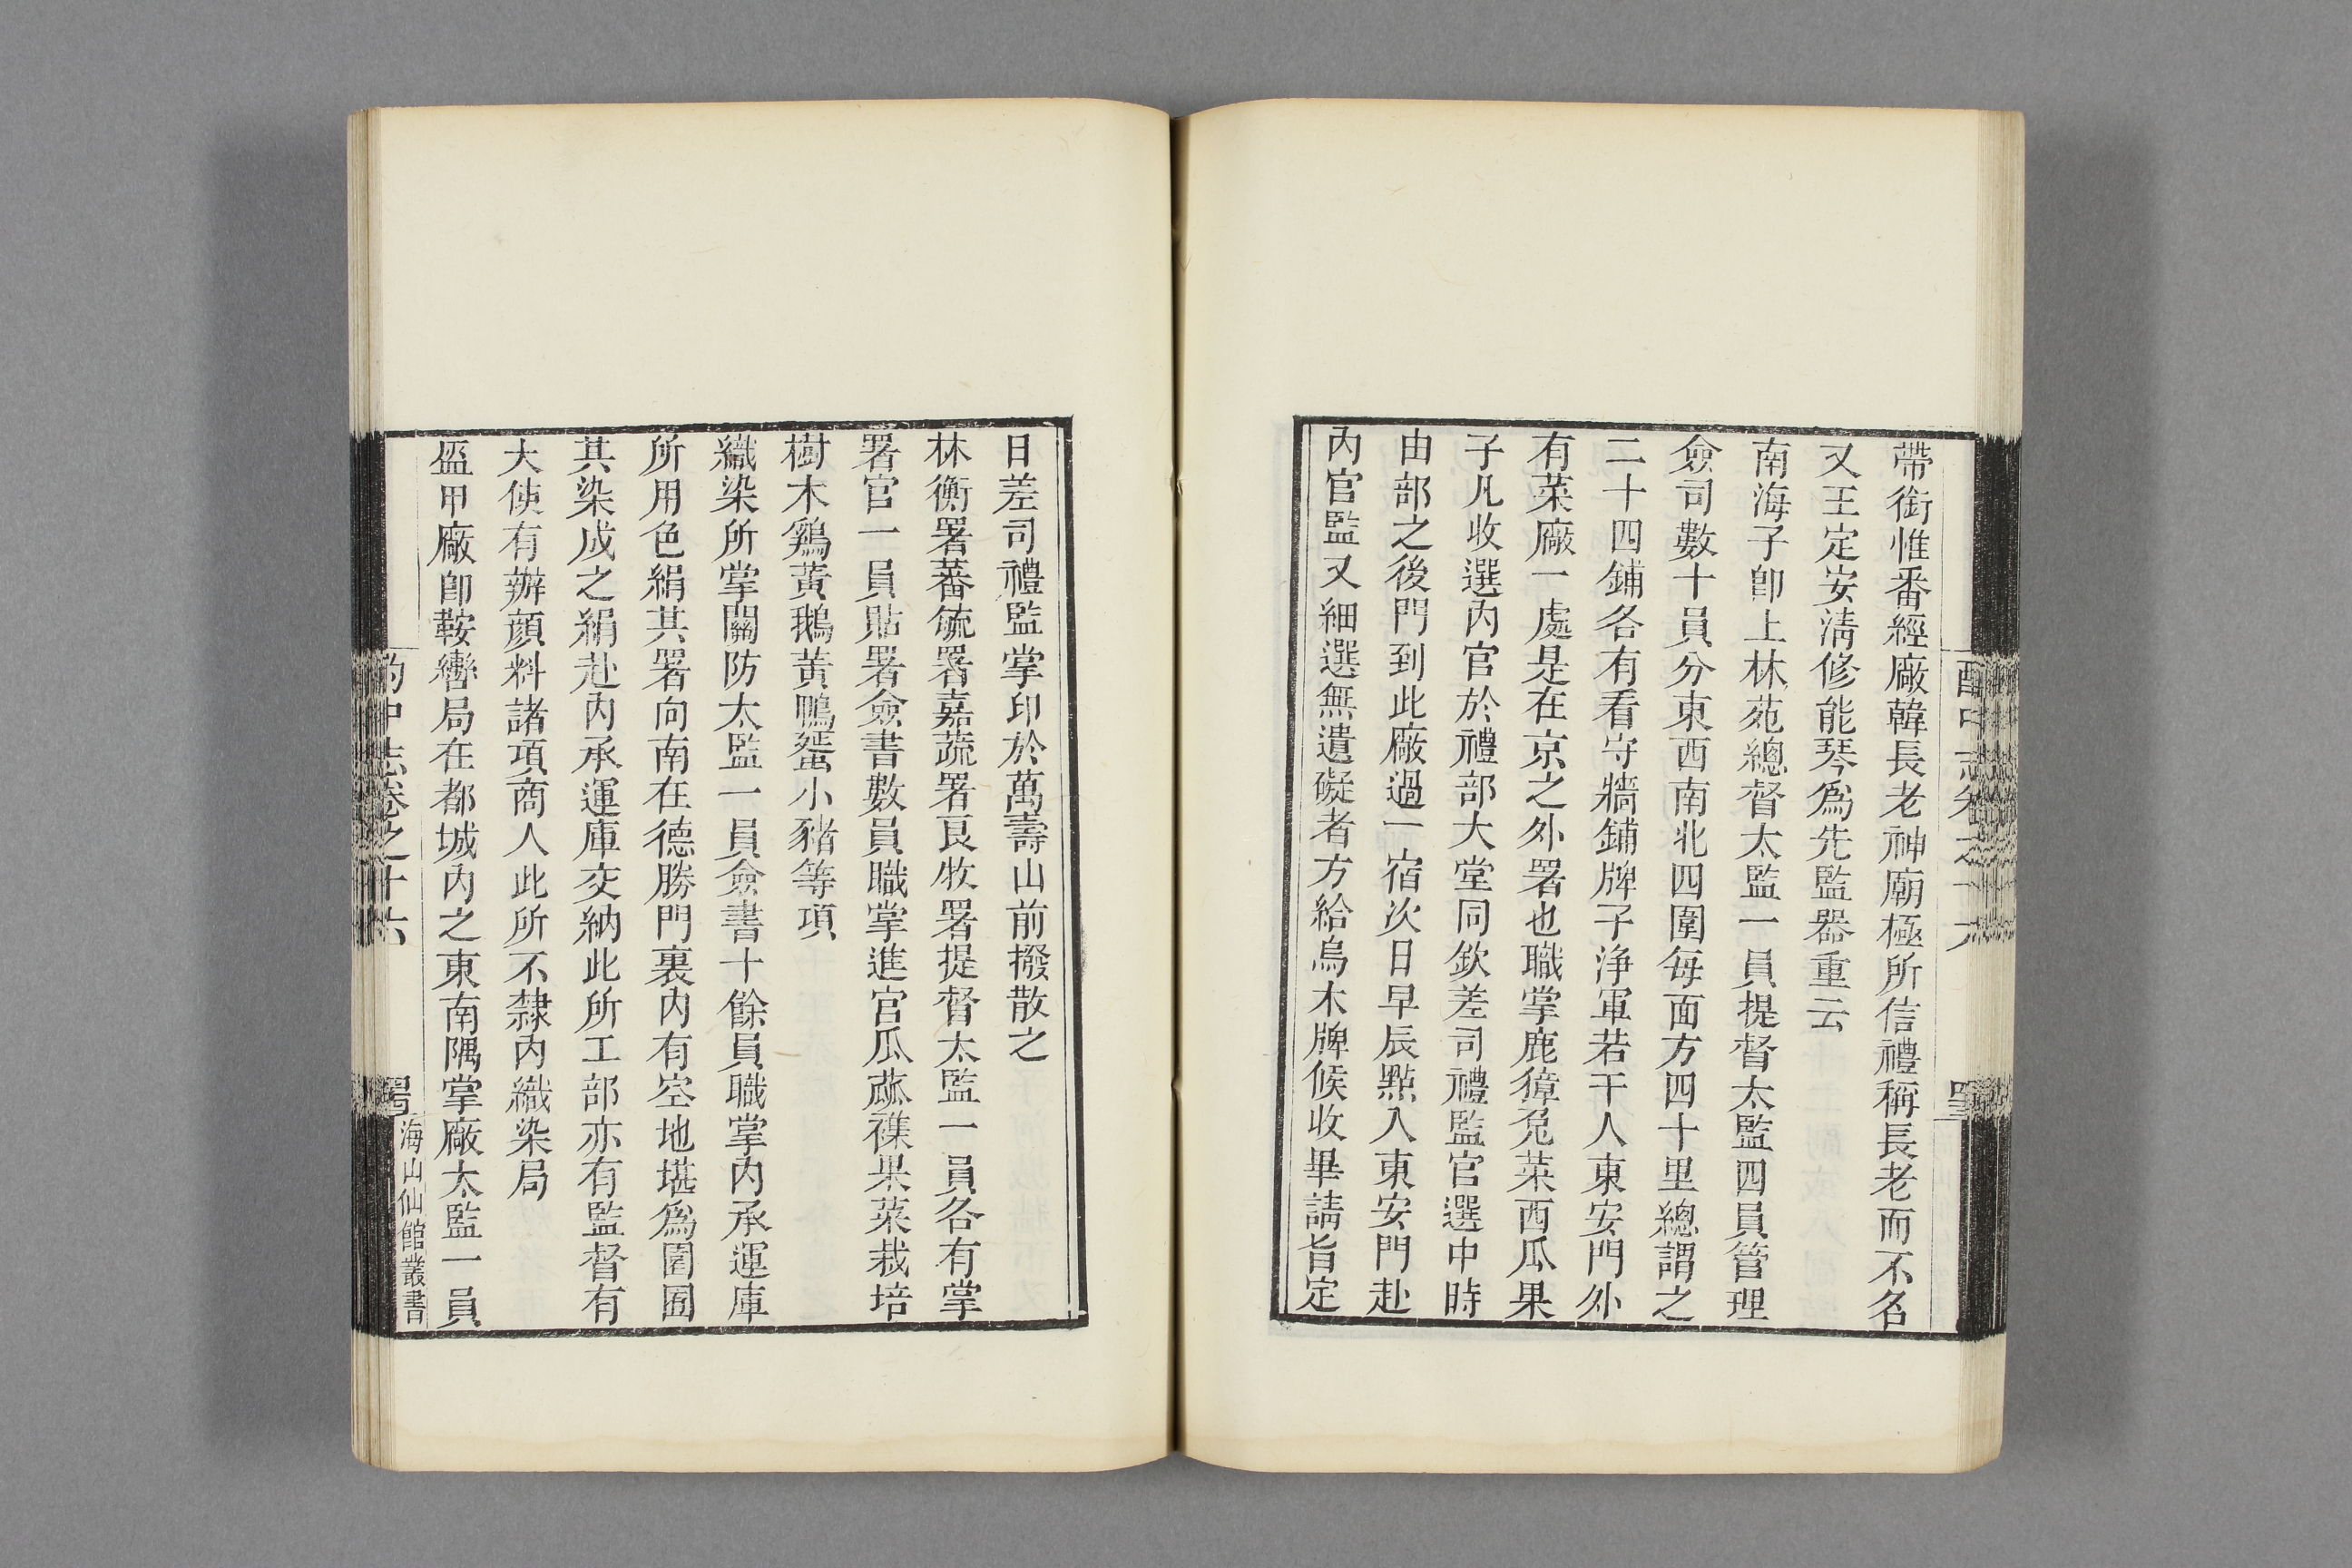 帶銜惟番經廠韓長老神廟極所信禮稱長老而不名
又王定安清修能琴爲先監器重云
南海子卽上林苑總督太監一員提督太監四員管理
僉司數十員分東西南北四圍每面方四十里總謂之
二十四鋪各有看守牆鋪牌子淨軍若干人東安門外
有菜廠一處是在京之外署也職掌鹿獐兔菜西瓜果
子凡收選內官於禮部大堂同欽差司禮監官選中時
由部之後門到此廠過一宿次日早辰點入東安門赴
內官監又細選無遺礙者方給烏木牌候收畢請旨定
日差司禮監掌印於萬壽山前撥散之
林衡署蕃毓署嘉蔬署良牧署提督太監一員各有掌
署官一員貼署僉書數員職掌進宮瓜蓏襍果菜栽培
樹木鷄黃鵝黃鴨蛋小豬等項
織染所掌關防太監一員僉書十餘員職掌內承運庫
所用色絹其署向南在德勝門裏內有空地堪爲園囿
其染成之絹赴內承運庫交納此所工部亦有監督有
大使有辦顔料諸項商人此所不隸內織染局
盔甲廠卽鞍轡局在都城內之東南隅掌廠太監一員
酌中志卷之十六
海山仙館叢書